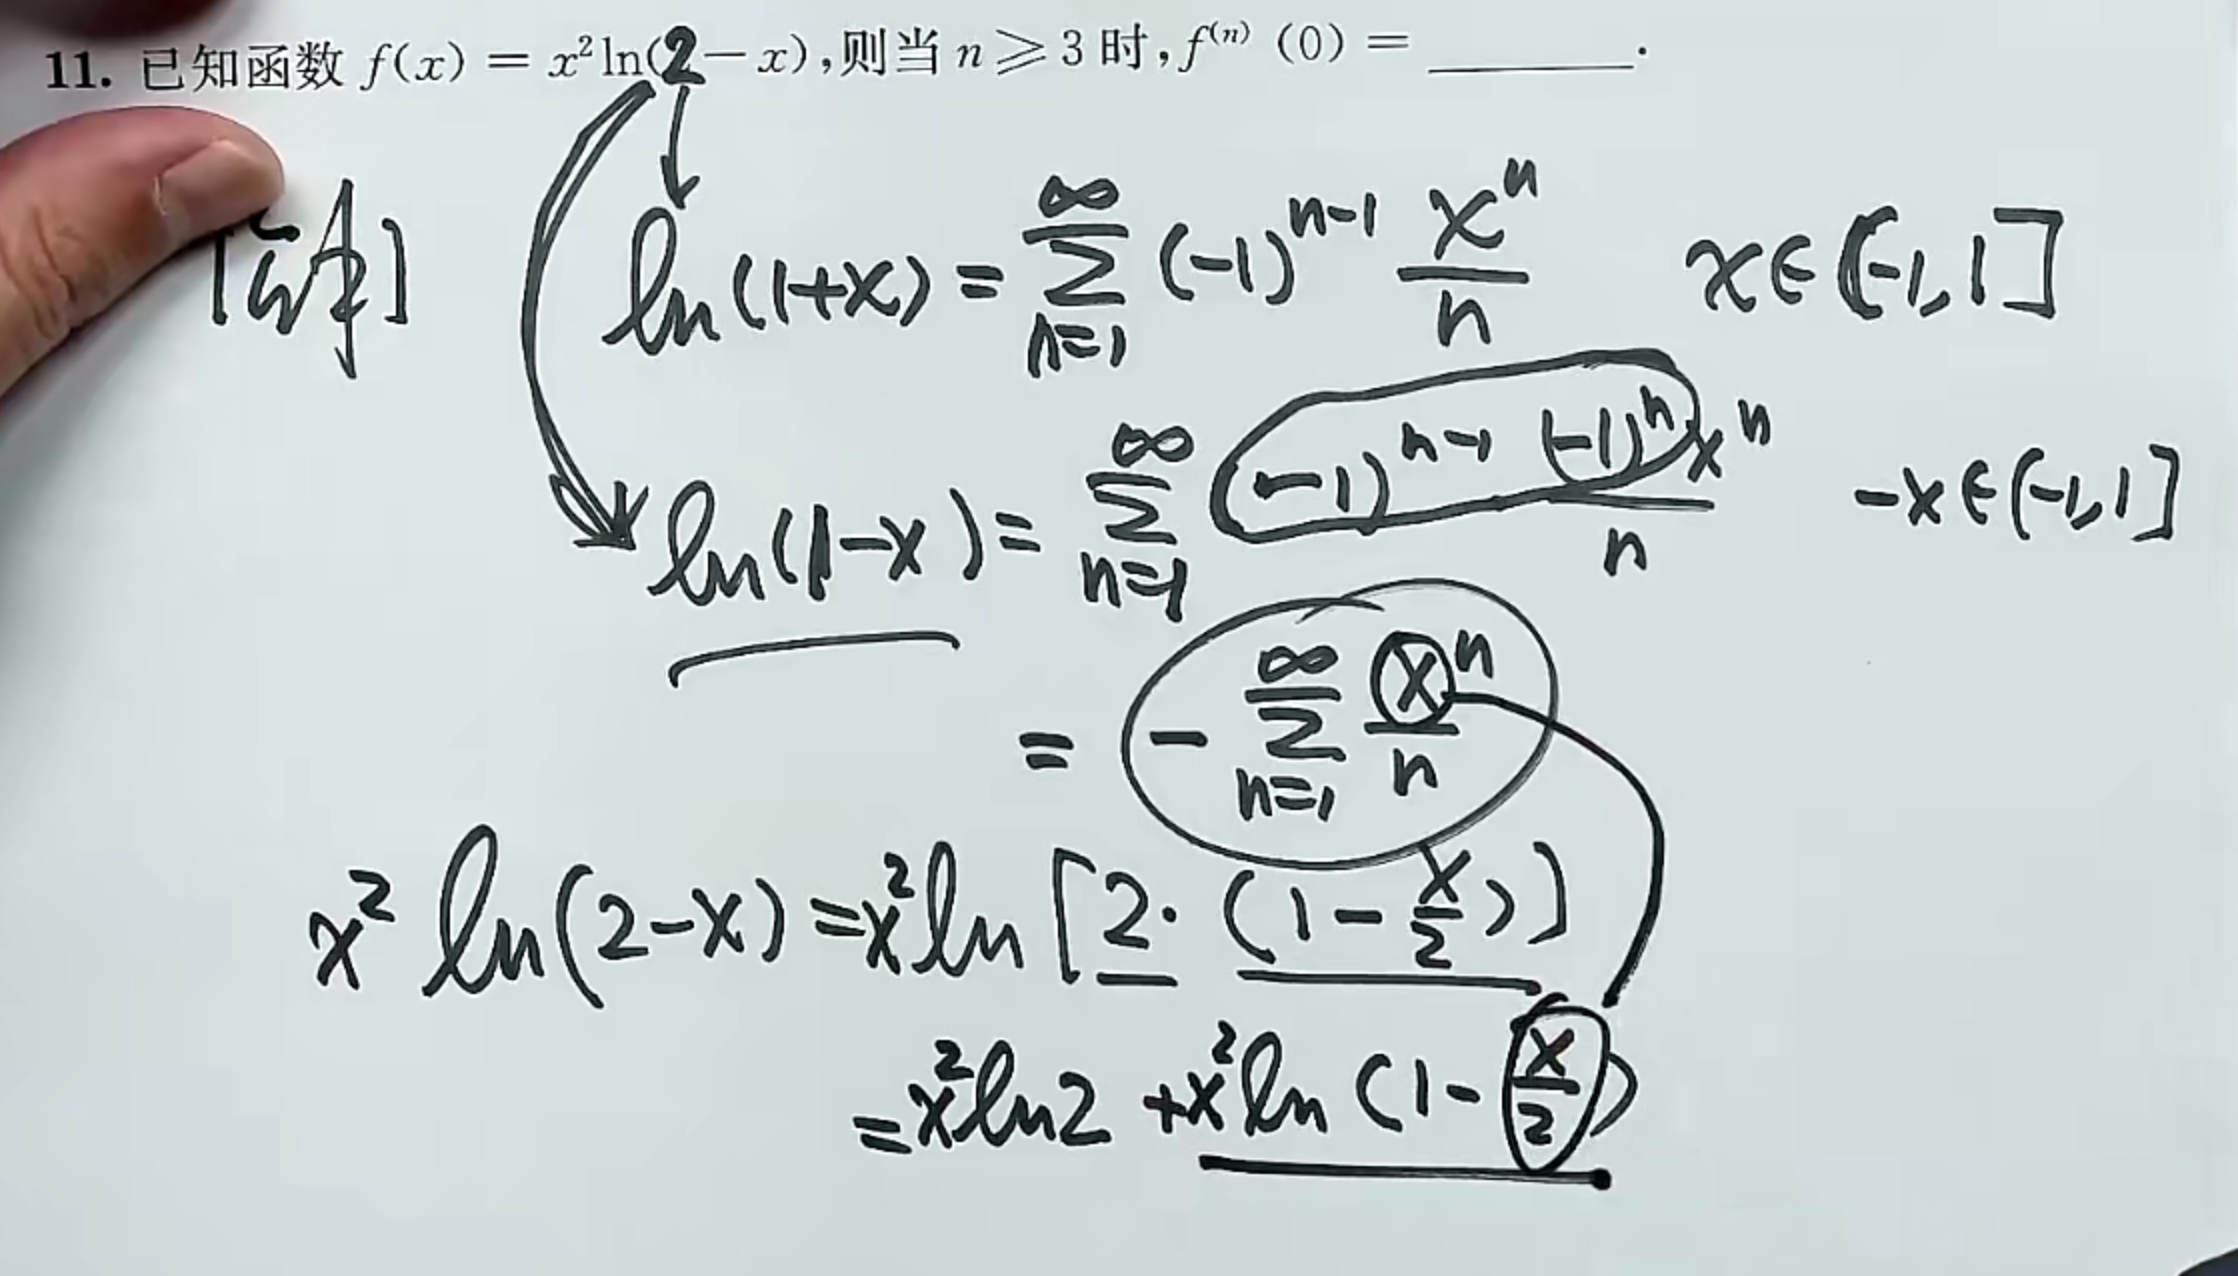 11. 已知函数 f(x) = x² ln(2 − x),则当 n ⩾ 3 时, f⁽ⁿ⁾ (0) = ______.
[解] ln(1+x) = ∑_{n=1}^{∞} (-1)^{n-1} x^n/n x∈(-1,1]
ln(1-x) = ∑_{n=1}^{∞} (-1)^{n-1} (-1)^n x^n/n -x∈(-1,1]
= - ∑_{n=1}^{∞} x^n/n
x² ln(2-x) = x² ln[2·(1-x/2)]
= x² ln2 + x² ln(1-x/2)